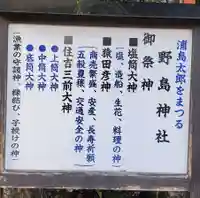 浦島太郎をまつる
野島神社
御祭神
■塩筒大神
（塩、造船、生花、料理の神）
■猿田彦神
（商売繁盛、安産、長寿祈願
五穀豊穣、交通安全の神）
■住吉三前大神
●上筒大神
●中筒大神
●底筒大神
（漁業の守護神、縁結び、子授けの神）